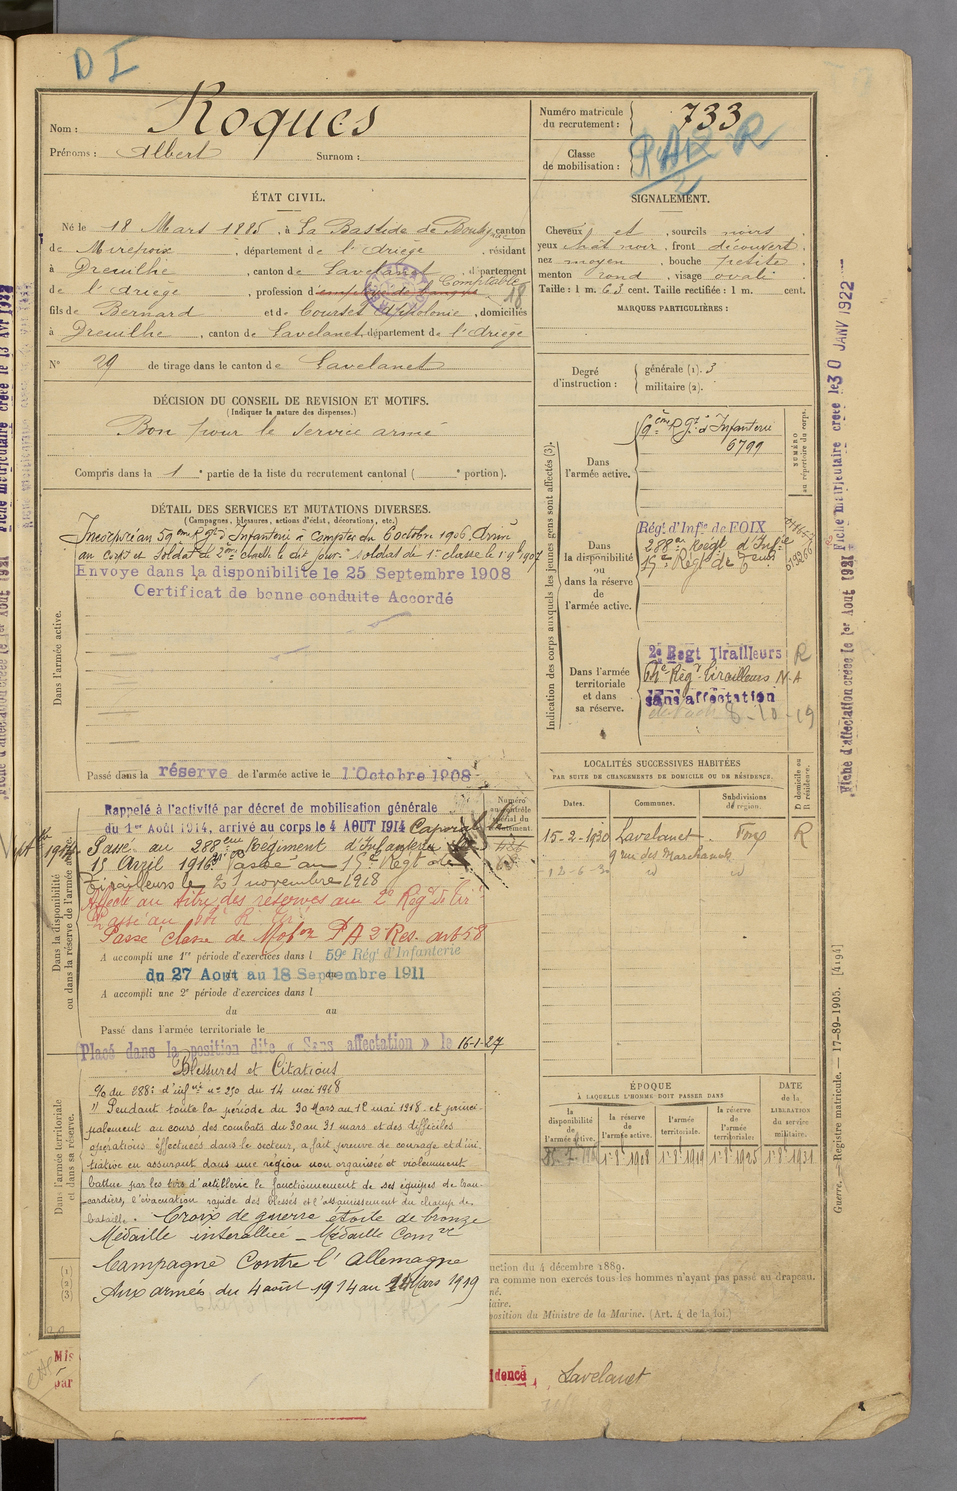 D I
Nom : Roques
Prénoms : Albert Surnom :
Numéro matricule du recrutement : 733
Classe de mobilisation :
P.A.2 R
2
ÉTAT CIVIL.
Né le 18 Mars 1885, à La Bastide de canton
de Mirepoix, département de l'Ariège, résidant
à Dreuilhe, canton de Lavelanet, département
de l'Ariège, profession d'employé de Comptable 18
fils de Bernard et de Courset Apolonie, domiciliés
à Dreuilhe, canton de Lavelanet département de l'Ariège
N° 29 de tirage dans le canton de Lavelanet
SIGNALEMENT.
Cheveux et, sourcils noirs,
yeux chât noir, front découvert,
nez moyen, bouche petite,
menton rond, visage ovale.
Taille : 1 m. 63 cent. Taille rectifiée : 1 m. cent.
MARQUES PARTICULIÈRES :
Degré d'instruction : générale (1). 3
militaire (2).
DÉCISION DU CONSEIL DE REVISION ET MOTIFS.
(Indiquer la nature des dispenses.)
Bon pour le service armé
Compris dans la 1 e partie de la liste du recrutement cantonal ( e portion).
DÉTAIL DES SERVICES ET MUTATIONS DIVERSES.
(Campagnes, blessures, actions d'éclat, décorations, etc.)
Dans l'armée active.
Incorporé au 59ème Rgt d'Infanterie à Compter du 6 octobre 1906. Arrivé
au corps et Soldat de 2ème classe le dit jour. Soldat de 1e classe le 1 9b 1907
Envoyé dans la disponibilité le 25 Septembre 1908
Certificat de bonne conduite Accordé
Passé dans la réserve de l'armée active le 1 Octobre 1908
Dans la disponibilité ou dans la réserve de l'armée active.
Numéro au contrôle spécial du recrutement.
Rappelé à l'activité par décret de mobilisation générale
du 1er Août 1914, arrivé au corps le 4 AOUT 1914 Caporal le
Passé au 288eme Régiment d'Infanterie
15 Avril 1916. Passé au 15e Régt de
Tirailleurs le 21 novembre 1918
Affecté au titre des réserves au 2e Régt de Tir
Passé au
Passé classe de Mobon P A 2 Res. art 58
A accompli une 1re période d'exercices dans l 59e Régt d'Infanterie
du 27 Août au 18 Septembre 1911
A accompli une 2e période d'exercices dans l
du au
Passé dans l'armée territoriale le
Placé dans la position dite « Sans affectation » le 16-1-27
Dans l'armée territoriale et dans sa réserve.
Blessures et Citations
O/o du 288e d'infrie no 250 du 14 mai 1918
" Pendant toute la période du 30 Mars au 12 mai 1918 et princi-
palement au cours des combats du 30 au 31 mars et des difficiles
opérations effectuées dans le secteur, a fait preuve de courage et d'ini
tiative en assurant dans une région non organisée et violemment
battue par les tirs d'artillerie le fonctionnement de ses équipes de bran-
cardiers, l'évacuation rapide des blessés et l'assainissement du champ de
bataille. Croix de guerre étoile de bronze
Médaille interalliée - Médaille Comve
Campagne Contre l'Allemagne
Aux armées du 4 août 1914 au Mars 1919
Indication des corps auxquels les jeunes gens sont affectés (3).
NUMÉRO au répertoire du corps.
Dans l'armée active.
59ème Rgt d'Infanterie
6799
Dans la disponibilité ou dans la réserve de l'armée active.
Régt d'Infie de FOIX
288e Régt d'Infie
15e Régt de Tirs
Dans l'armée territoriale et dans sa réserve.
2e Regt Tirailleurs R
Régt Tirailleurs N.A
sans affectation
8-10-19
LOCALITÉS SUCCESSIVES HABITÉES
PAR SUITE DE CHANGEMENTS DE DOMICILE OU DE RÉSIDENCE.
Dates. Communes. Subdivisions de région. D domicile ou R résidence.
15-2-1930 Lavelanet Foix R
9 rue des Marchands
12-6-30 id id
ÉPOQUE
À LAQUELLE L'HOMME DOIT PASSER DANS
DATE de la LIBÉRATION du service militaire.
la disponibilité de l'armée active. la réserve de l'armée active. l'armée territoriale. la réserve de l'armée territoriale.
1 8 1908 1 8 1919 1 8 1925 1 8 1931
(1)
(2)
(3)
uction du 4 décembre 1889.
ra comme non exercés tous les hommes n'ayant pas passé au drapeau.
né.
iaire.
position du Ministre de la Marine. (Art. 4 de la loi.)
Mis
par
idence, Lavelanet
Fiche matriculaire créée le 30 JANV 1922
Fiche d'affectation créée le 1er Août 1921
Guerre. — Registre matricule. — 17-89-1905. [4194]